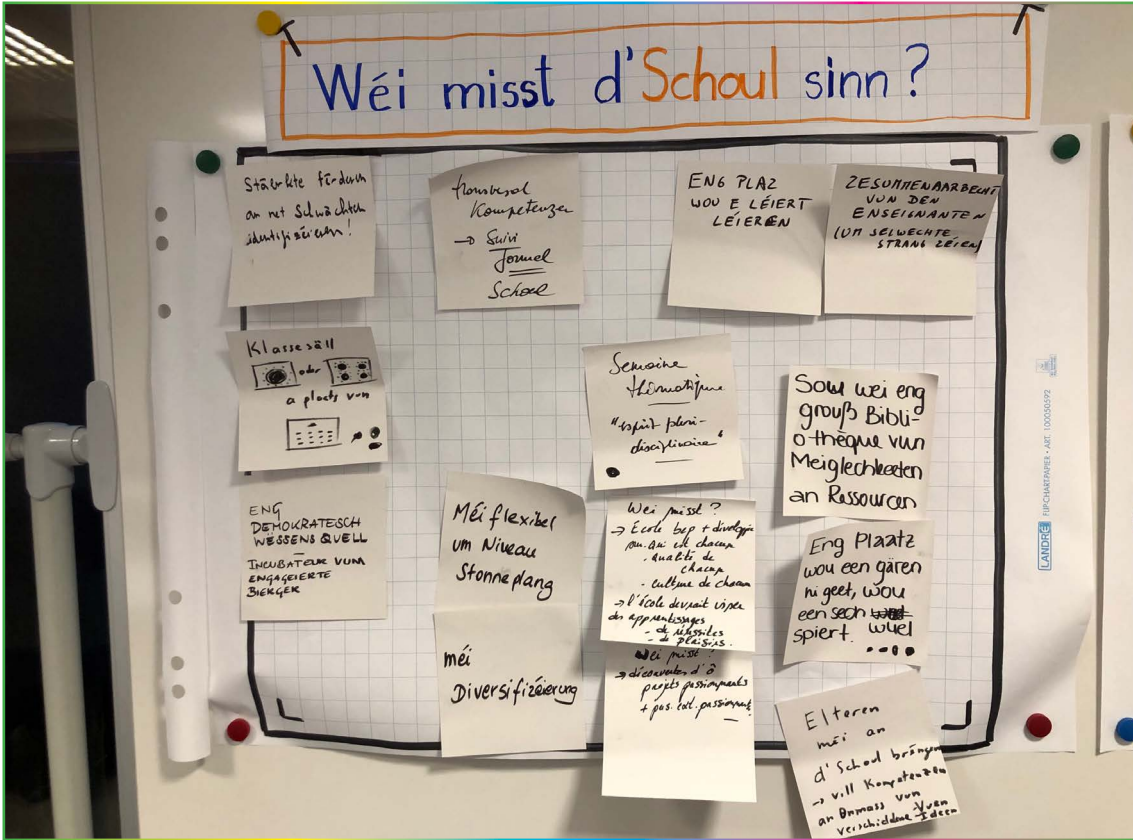 Wéi misst d'Schoul sinn?
Stäerkte fërderen
an net Schwächten
identifizéieren!
transversal
Kompetenzen
→ Suivi
formel
School
ENG PLAZ
WOU E LÉIERT
LÉIEREN
ZESUMMENAARBECHT
VUN DEN
ENSEIGNANTEN
(UM SELWECHTE
STRANG ZÉIEN)
Klassesäll
oder
a plaats vun
Semaine
thématique
"esprit pluri-
disciplinaire"
Sou wei eng
grouß Bibli-
othèque vun
Meiglechkeeten
an Ressourcen
ENG
DEMOKRATESCH
WËSSENS QUELL
INCUBATEUR VUM
ENGAGEIERTE
BIERGER
Méi flexibel
um Niveau
Stonneplang
Wei misst?
→ École bep + développe
pour qui est chacun
- qualité de
chacun
- culture de chacun
→ l'école devrait viser
des apprentissages
- de réussites
- de plaisirs.
Eng Plaatz
wou een gären
hi geet, wou
een sech
spiert. wuel
méi
Diversifizéierung
Wei misst?
→ découvertes d'
projets passionnants
+ passionnant
Elteren
méi an
d'School bréngen
→ vill Kompetenzen
an Onmass vun
verschiddene Ideen
LANDRÉ FLIPCHARTPAPIER • ART. 100050592